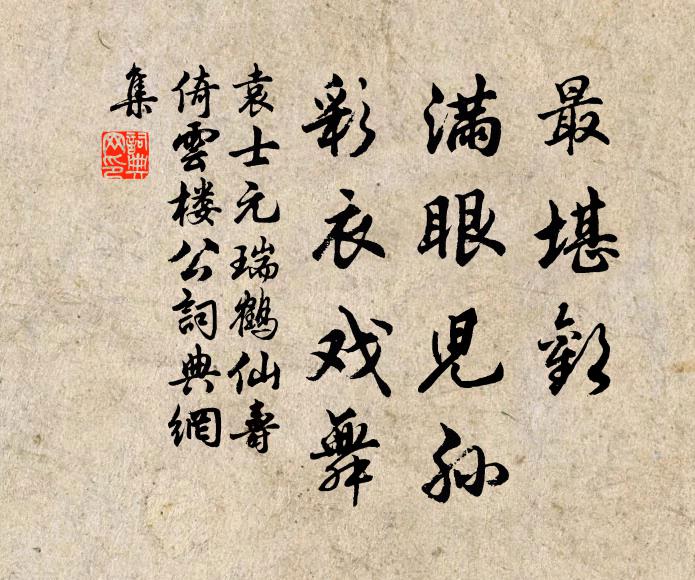 最堪歡
满眼兒孙
彩衣戏舞
袁士元瑞鶴仙壽
倚雲楼公詞典網
集
詞典
网印